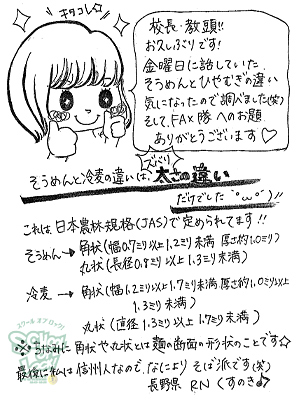 キタコレ☆
校長・教頭!!
お久しぶりです!
金曜日に話していた
そうめんとひやむぎの違い
気になったので調べました(笑)
そして、FAX隊へのお題
ありがとうございます♡
ズバリ
そうめんと冷麦の違いは、太さの違い
だけでした ˚'ω'˚)!!
これは、日本農林規格(JAS)で定められてます!!
そうめん→角状(幅0.7ミリ以上1.2ミリ未満 厚さ約1.0ミリ)
丸状(長径0.8ミリ以上1.3ミリ未満)
冷麦→角状(幅1.2ミリ以上1.7ミリ未満 厚さ約1.0ミリ以上
1.3ミリ未満)
丸状(直径1.3ミリ以上1.7ミリ未満)
※ちなみに角状や丸状とは麺の断面の形状のことです☆
最後に私は信州人なので、なにより そば派です(笑)
長野県 RN くすのき♪
スクール オブ ロック!